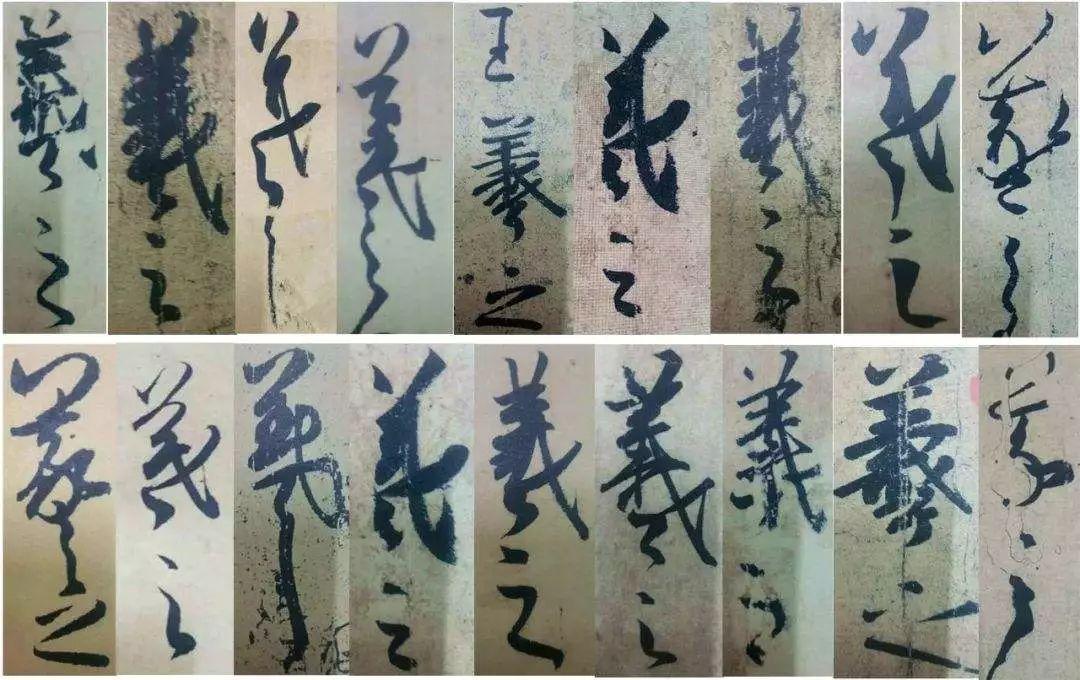 羲之
羲之
羲之
羲之
王羲之
羲之
羲之
羲之
羲之
羲之
羲之
羲之
羲之
羲之
羲之
羲之
羲之
羲之